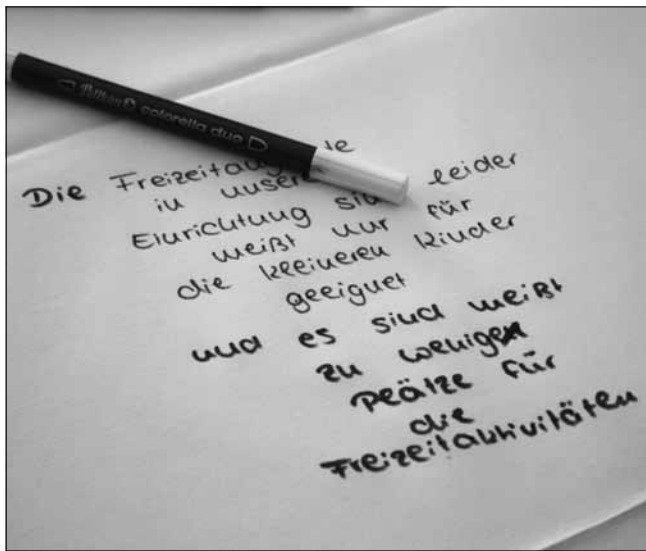 Pelikan colorella duo
Die Freizeitang
in unser
Einrichtung sin leider
meißt nur für
die kleineren Kinder
geeignet
und es sind meißt
zu wenige
Plätze für
die
Freizeitaktivitäten